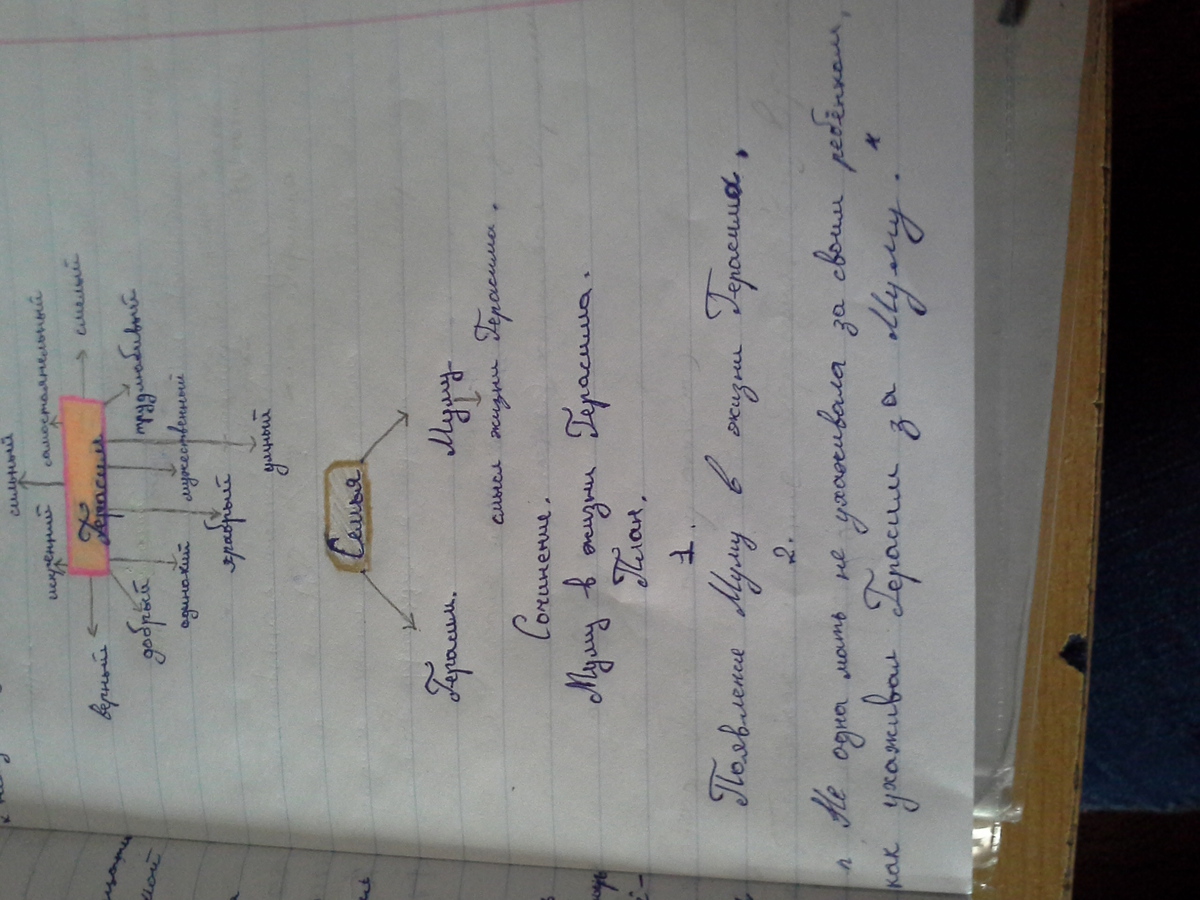 сильный
искренний самостоятельный
Герасим
верный смелый
добрый трудолюбивый
одинокий мужественный
храбрый умный
Семья
Герасим. Муму-
смысл жизни Герасима.
Сочинение.
Муму в жизни Герасима.
План.
1.
Появление Муму в жизни Герасима.
2.
"Не одна мать не ухаживала за своим ребёнком,
как ухаживал Герасим за Муму."